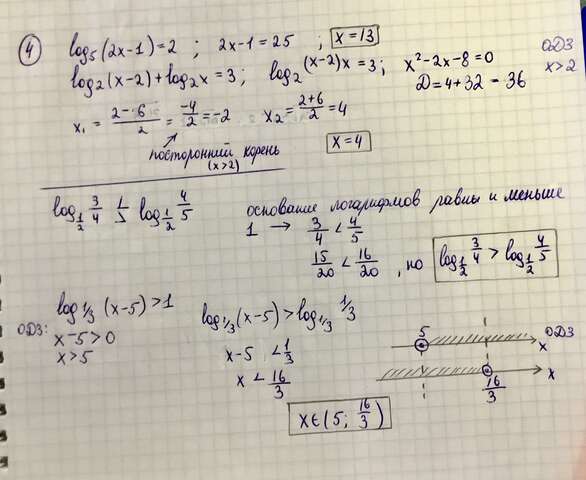 ④ log₅(2x-1)=2 ; 2x-1=25 ; x=13
log₂(x-2)+log₂x=3 ; log₂(x-2)x=3 ; x²-2x-8=0 ОДЗ x>2
D=4+32=36
x₁=(2-6)/2=-4/2=-2 x₂=(2+6)/2=4
посторонний корень (x>2) x=4
log₁/₂ 3/4 log₁/₂ 4/5
основание логарифмов равны и меньше
1 → 3/4 < 4/5
15/20 < 16/20 , но log₁/₂ 3/4 > log₁/₂ 4/5
log₁/₃(x-5)>1 log₁/₃(x-5)>log₁/₃ 1/3
ОДЗ:
x-5>0 x-5 <1/3
x>5 x<16/3
5 ОДЗ x
16/3 x
x∈(5; 16/3)